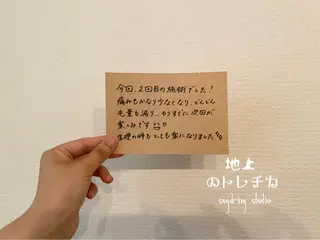 今回、2回目の施術でした！
痛みもかなり少なくなり、どんどん
毛量も減り、もうすでに次回が
楽しみです
生理の時もとっても楽になりました
地上
のトレチカ
sugaring studio